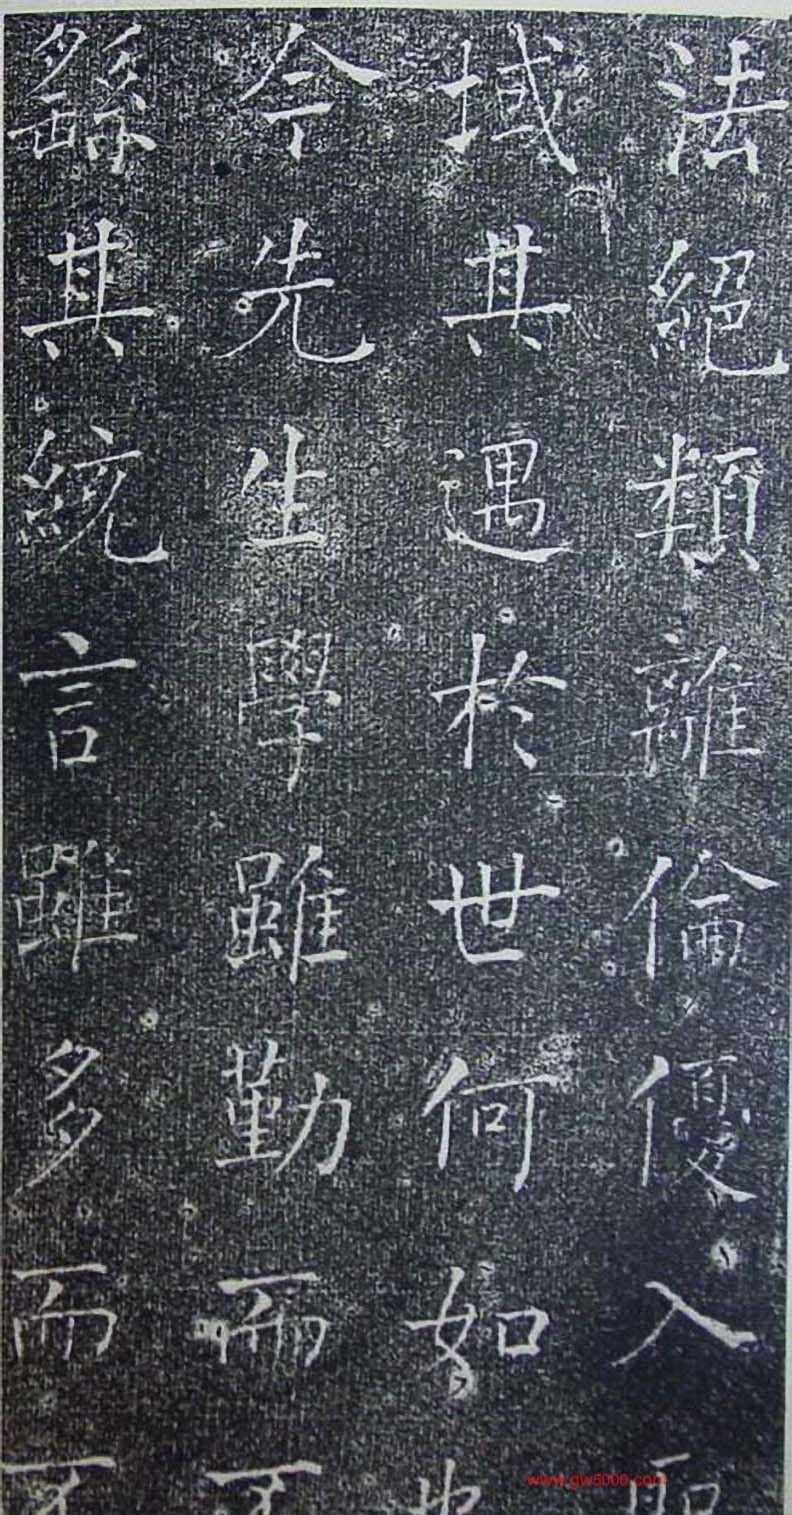 法絕類離倫優入
域其遇於世何如也
今先生學雖勤而不
繇其統言雖多而不
www.gw5000.com